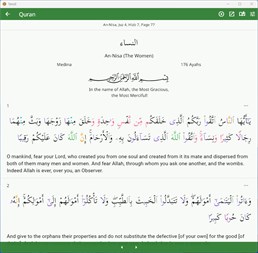 Quran
An-Nisa, Juz 4, Hizb 7, Page 77
النساء
An-Nisa (The Women)
Medina
176 Ayahs
بِسْمِ اللَّهِ الرَّحْمَٰنِ الرَّحِيمِ
In the name of Allah, the Most Gracious,
the Most Merciful!
1
يَٰٓأَيُّهَا ٱلنَّاسُ ٱتَّقُوا۟ رَبَّكُمُ ٱلَّذِى خَلَقَكُم مِّن نَّفْسٍ وَٰحِدَةٍ وَخَلَقَ مِنْهَا زَوْجَهَا وَبَثَّ مِنْهُمَا
رِجَالًا كَثِيرًا وَنِسَآءً ۚ وَٱتَّقُوا۟ ٱللَّهَ ٱلَّذِى تَسَآءَلُونَ بِهِۦ وَٱلْأَرْحَامَ ۚ إِنَّ ٱللَّهَ كَانَ عَلَيْكُمْ رَقِيبًا
O mankind, fear your Lord, who created you from one soul and created from it its mate and dispersed
from both of them many men and women. And fear Allah, through whom you ask one another, and the wombs.
Indeed Allah is ever, over you, an Observer.
2
وَءَاتُوا۟ ٱلْيَتَٰمَىٰٓ أَمْوَٰلَهُمْ ۖ وَلَا تَتَبَدَّلُوا۟ ٱلْخَبِيثَ بِٱلطَّيِّبِ ۖ وَلَا تَأْكُلُوٓا۟ أَمْوَٰلَهُمْ إِلَىٰٓ أَمْوَٰلِكُمْ ۚ إِنَّهُۥ
كَانَ حُوبًا كَبِيرًا
And give to the orphans their properties and do not substitute the defective [of your own] for the good [of